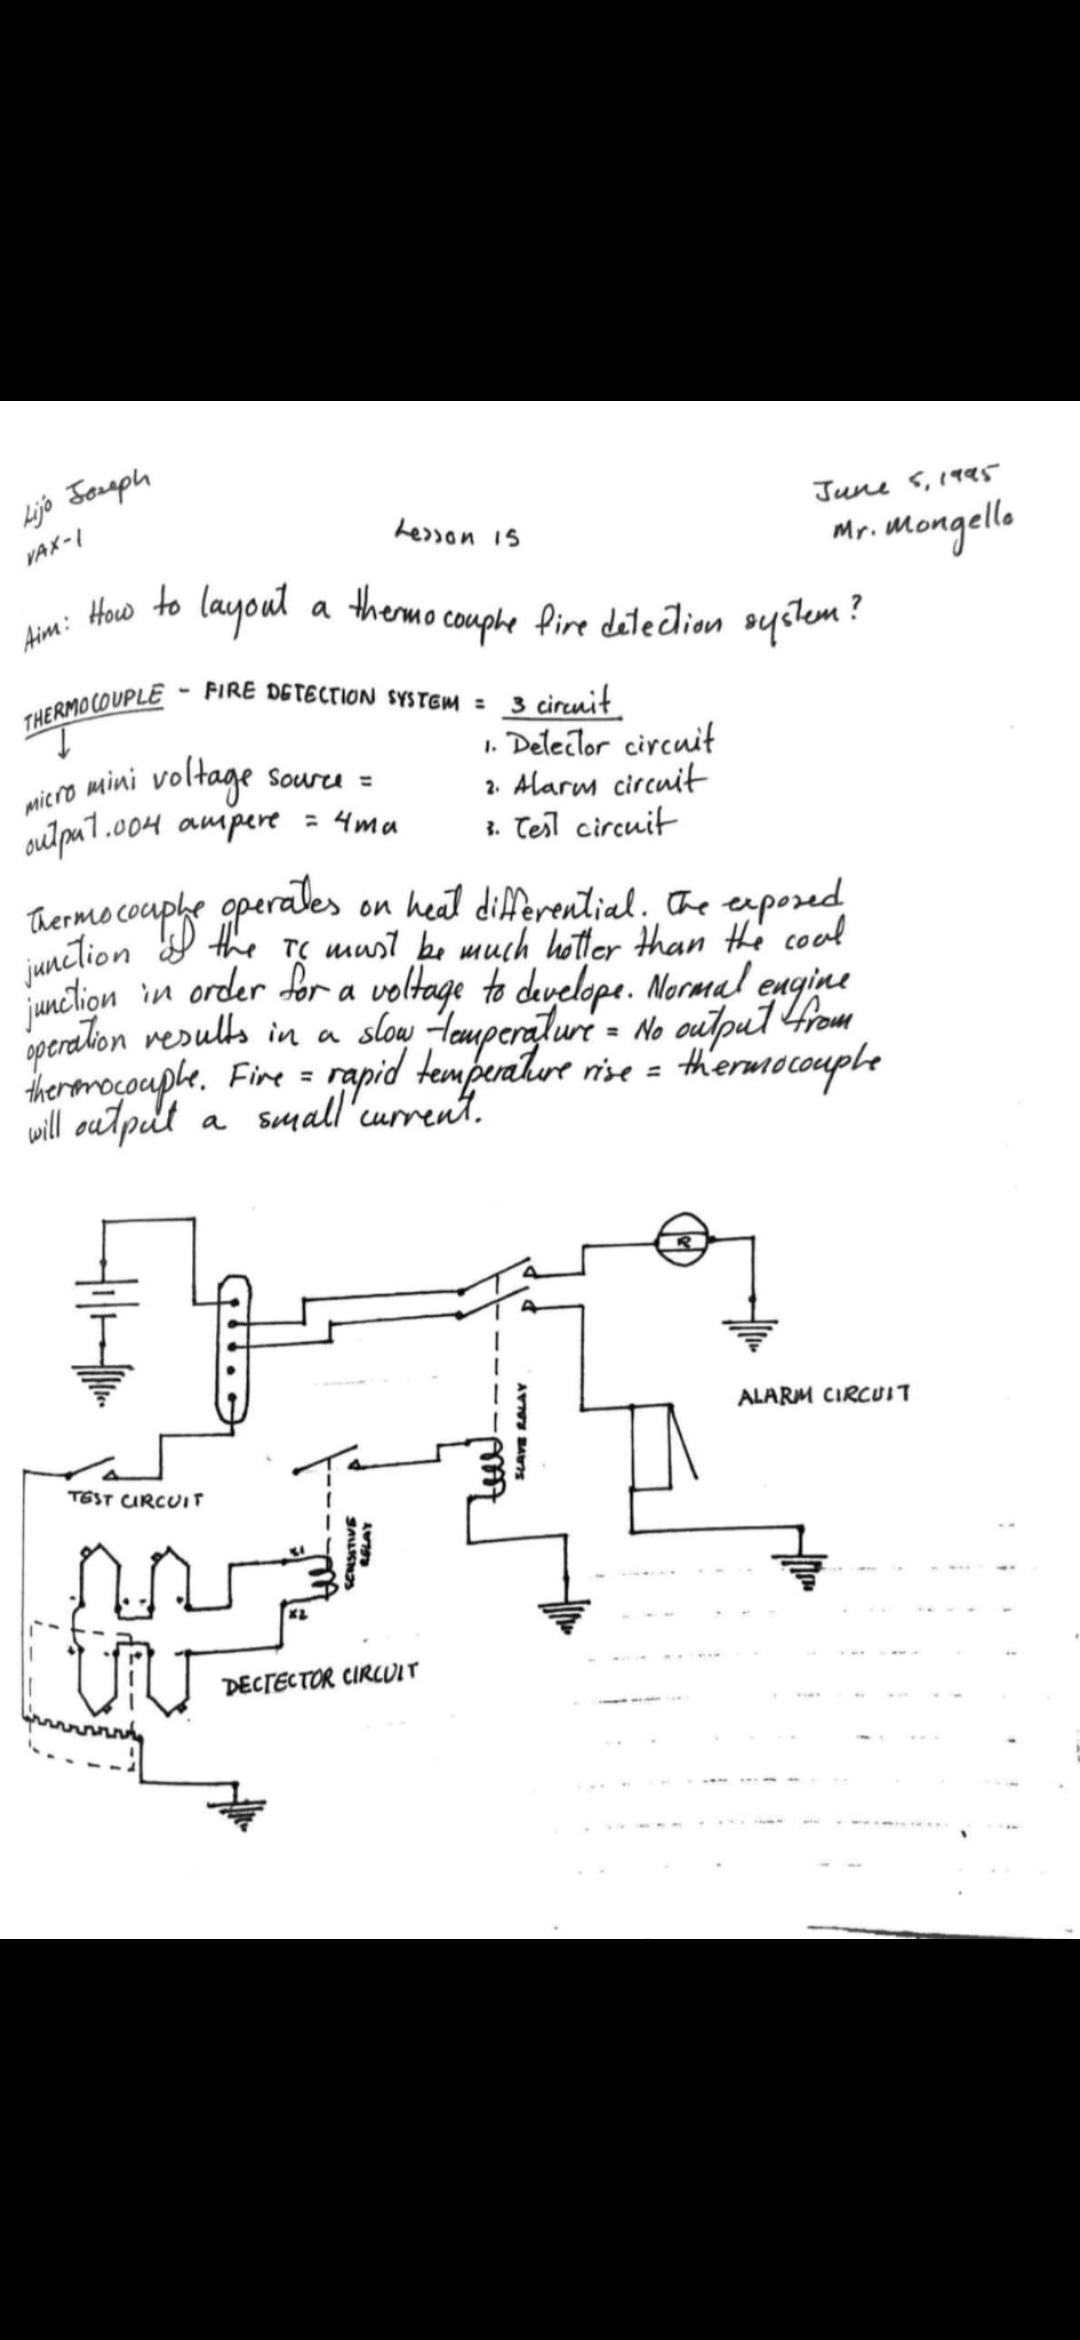 Lijo Joseph
VAX-1
Lesson 15
June 5, 1995
Mr. Mongello
Aim: How to layout a thermocouphe fire detection system?
THERMOCOUPLE - FIRE DETECTION SYSTEM = 3 circuit
1. Detector circuit
2. Alarm circuit
3. Test circuit
micro mini voltage source =
output .004 ampere = 4ma
Thermocouphe operates on heat differential. The exposed
junction of the TC must be much hotter than the cool
junction in order for a voltage to develope. Normal engine
operation results in a slow temperature = No output from
thermocouphe. Fire = rapid temperature rise = thermocouphe
will output a small current.
R
ALARM CIRCUIT
SLAVE RELAY
TEST CIRCUIT
SENSITIVE
RELAY
X1
X2
DECTECTOR CIRCUIT